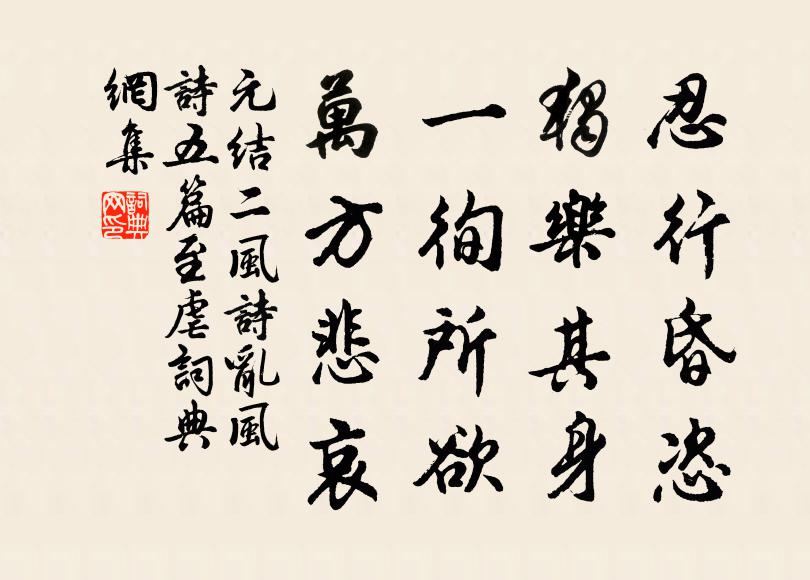 忍行昏恣
獨樂其身
一徇所欲
萬方悲哀
元結二風詩亂風
詩五篇至虐詞典
網集
詞典網印